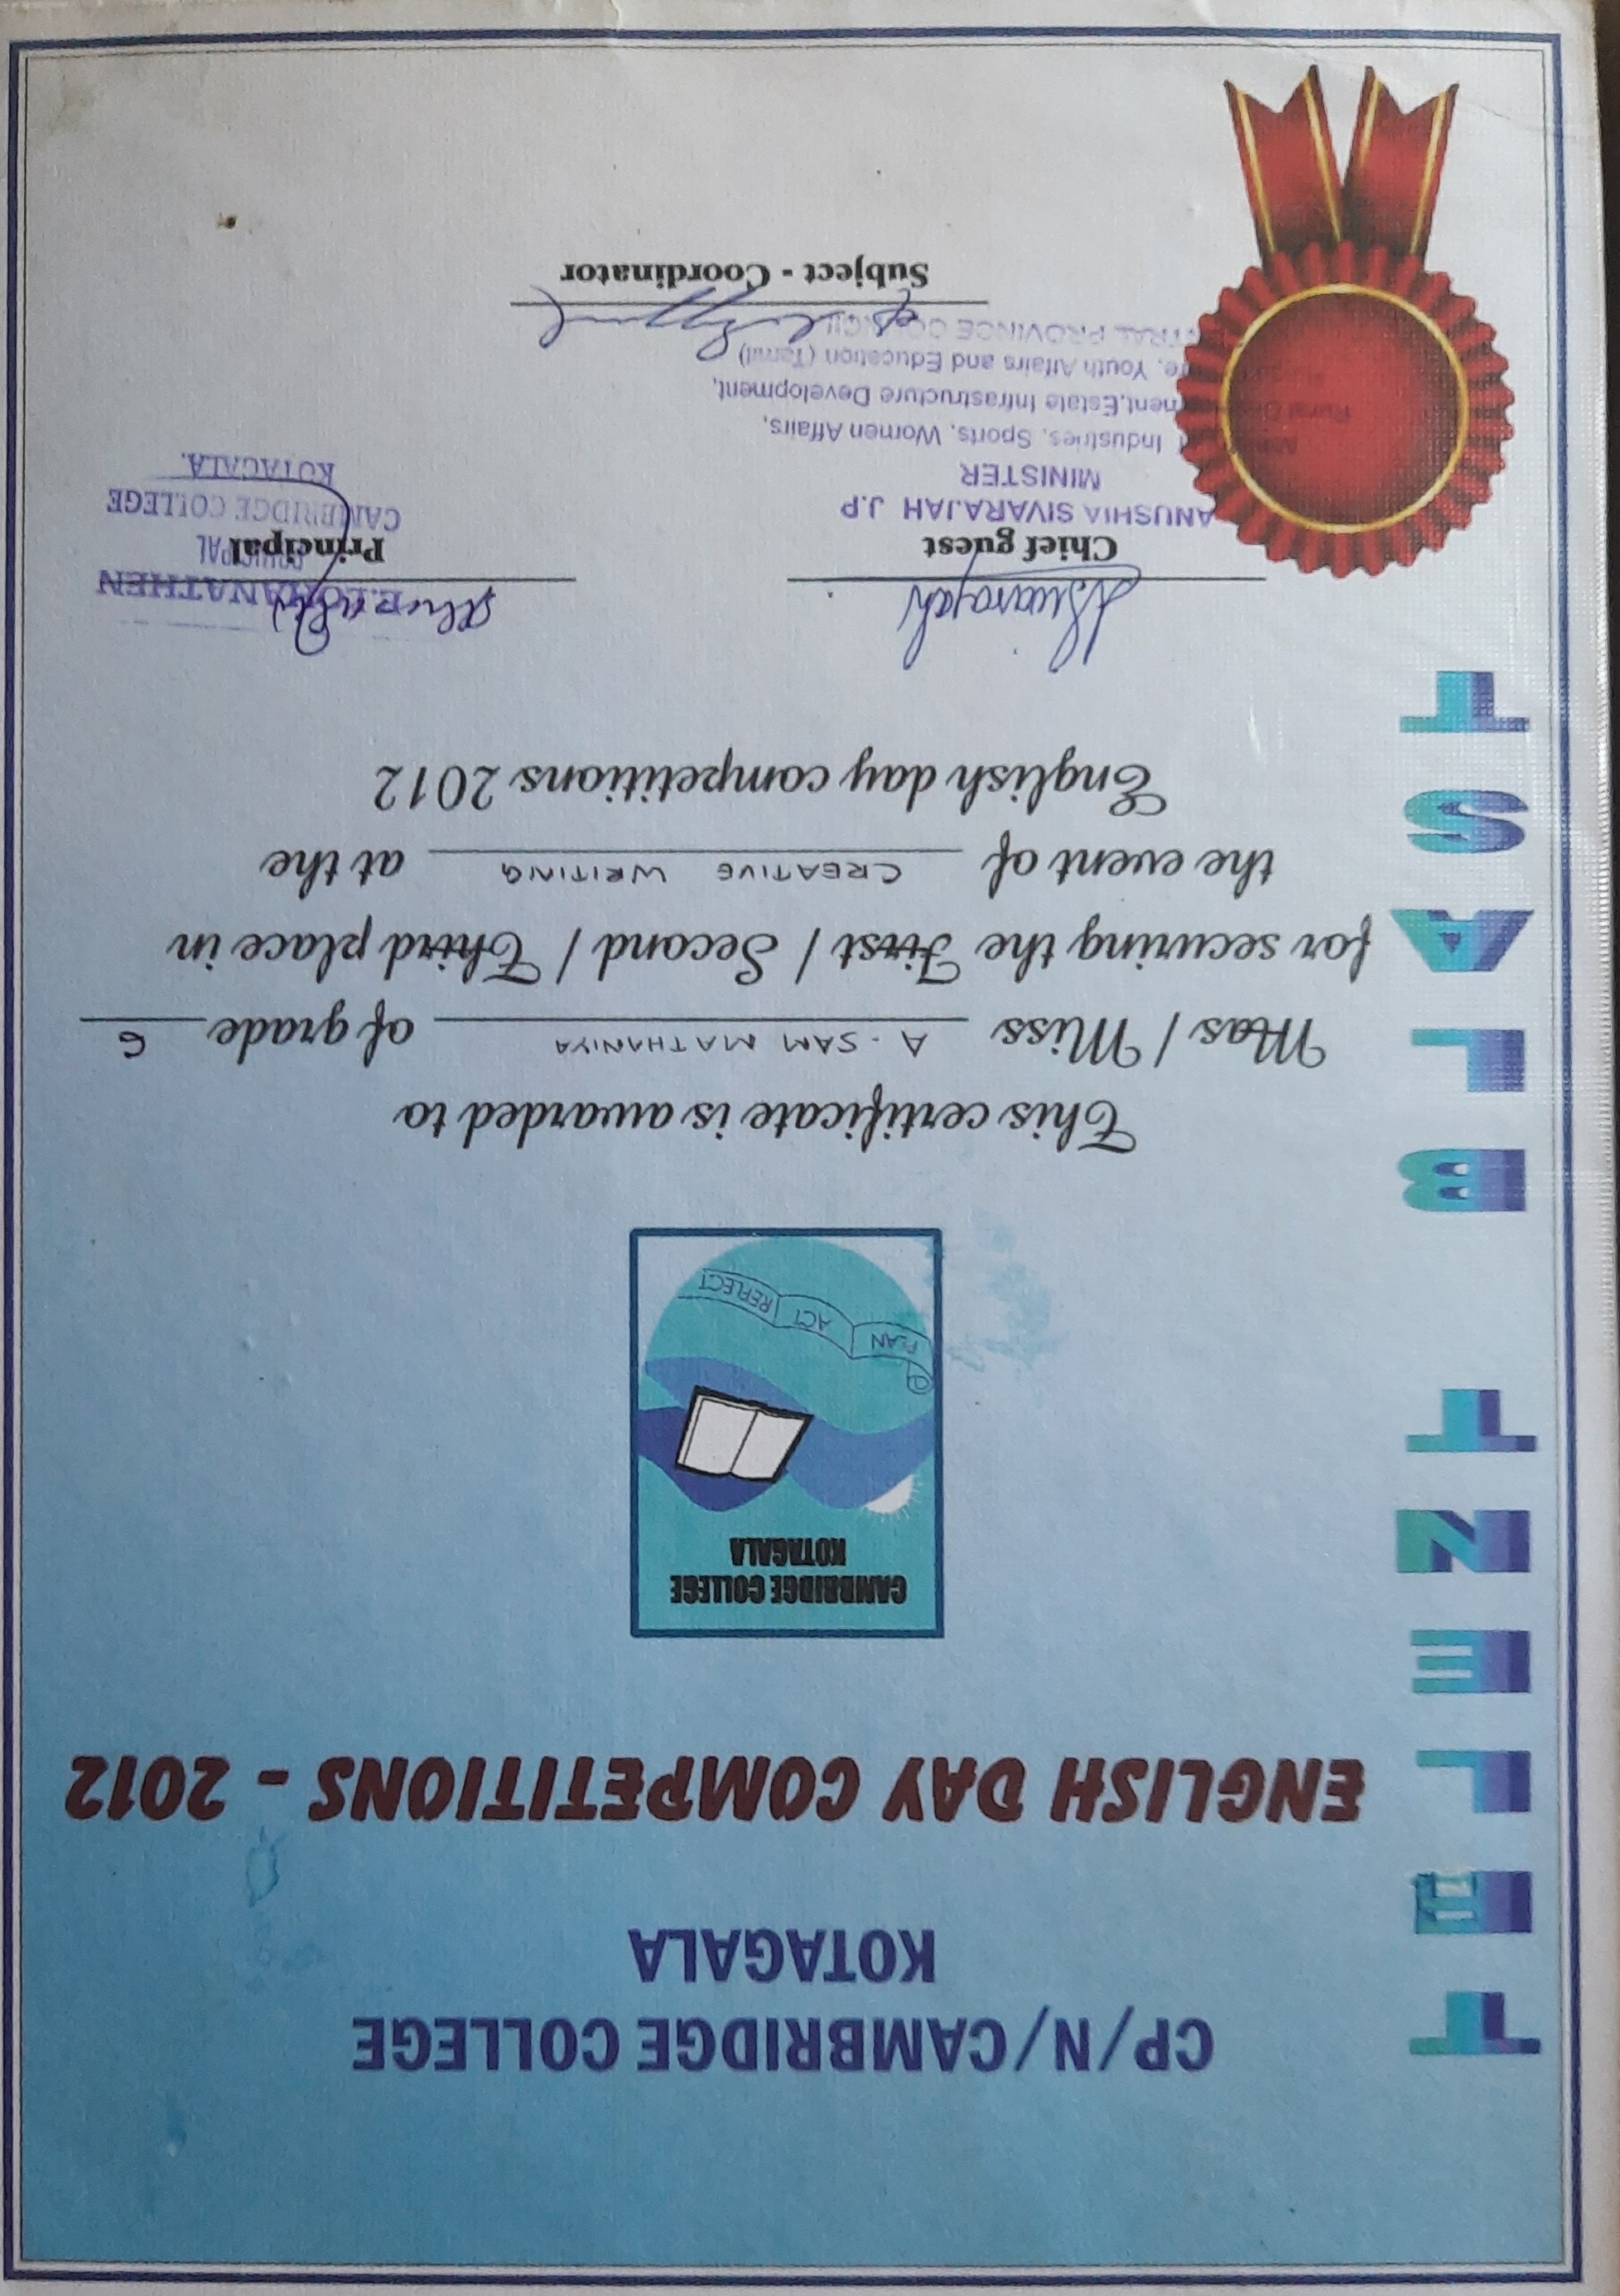 TALENT BLAST
CP/N/CAMBRIDGE COLLEGE
KOTAGALA
ENGLISH DAY COMPETITIONS - 2012
CAMBRIDGE COLLEGE
KOTAGALA
PLAN ACT REFLECT
This certificate is awarded to
Mas / Miss A. SAM MATHANIYA of grade 6
for securing the First / Second / Third place in
the event of CREATIVE WRITING at the
English day competitions 2012
Chief guest
ANUSHIA SIVARAJAH J.P
MINISTER
Industries, Sports, Women Affairs,
Estate Infrastructure Development,
Youth Affairs and Education (Tamil)
PROVINCE COUNCIL
Principal
PRINCIPAL
CAMBRIDGE COLLEGE
KOTAGALA.
Subject - Coordinator